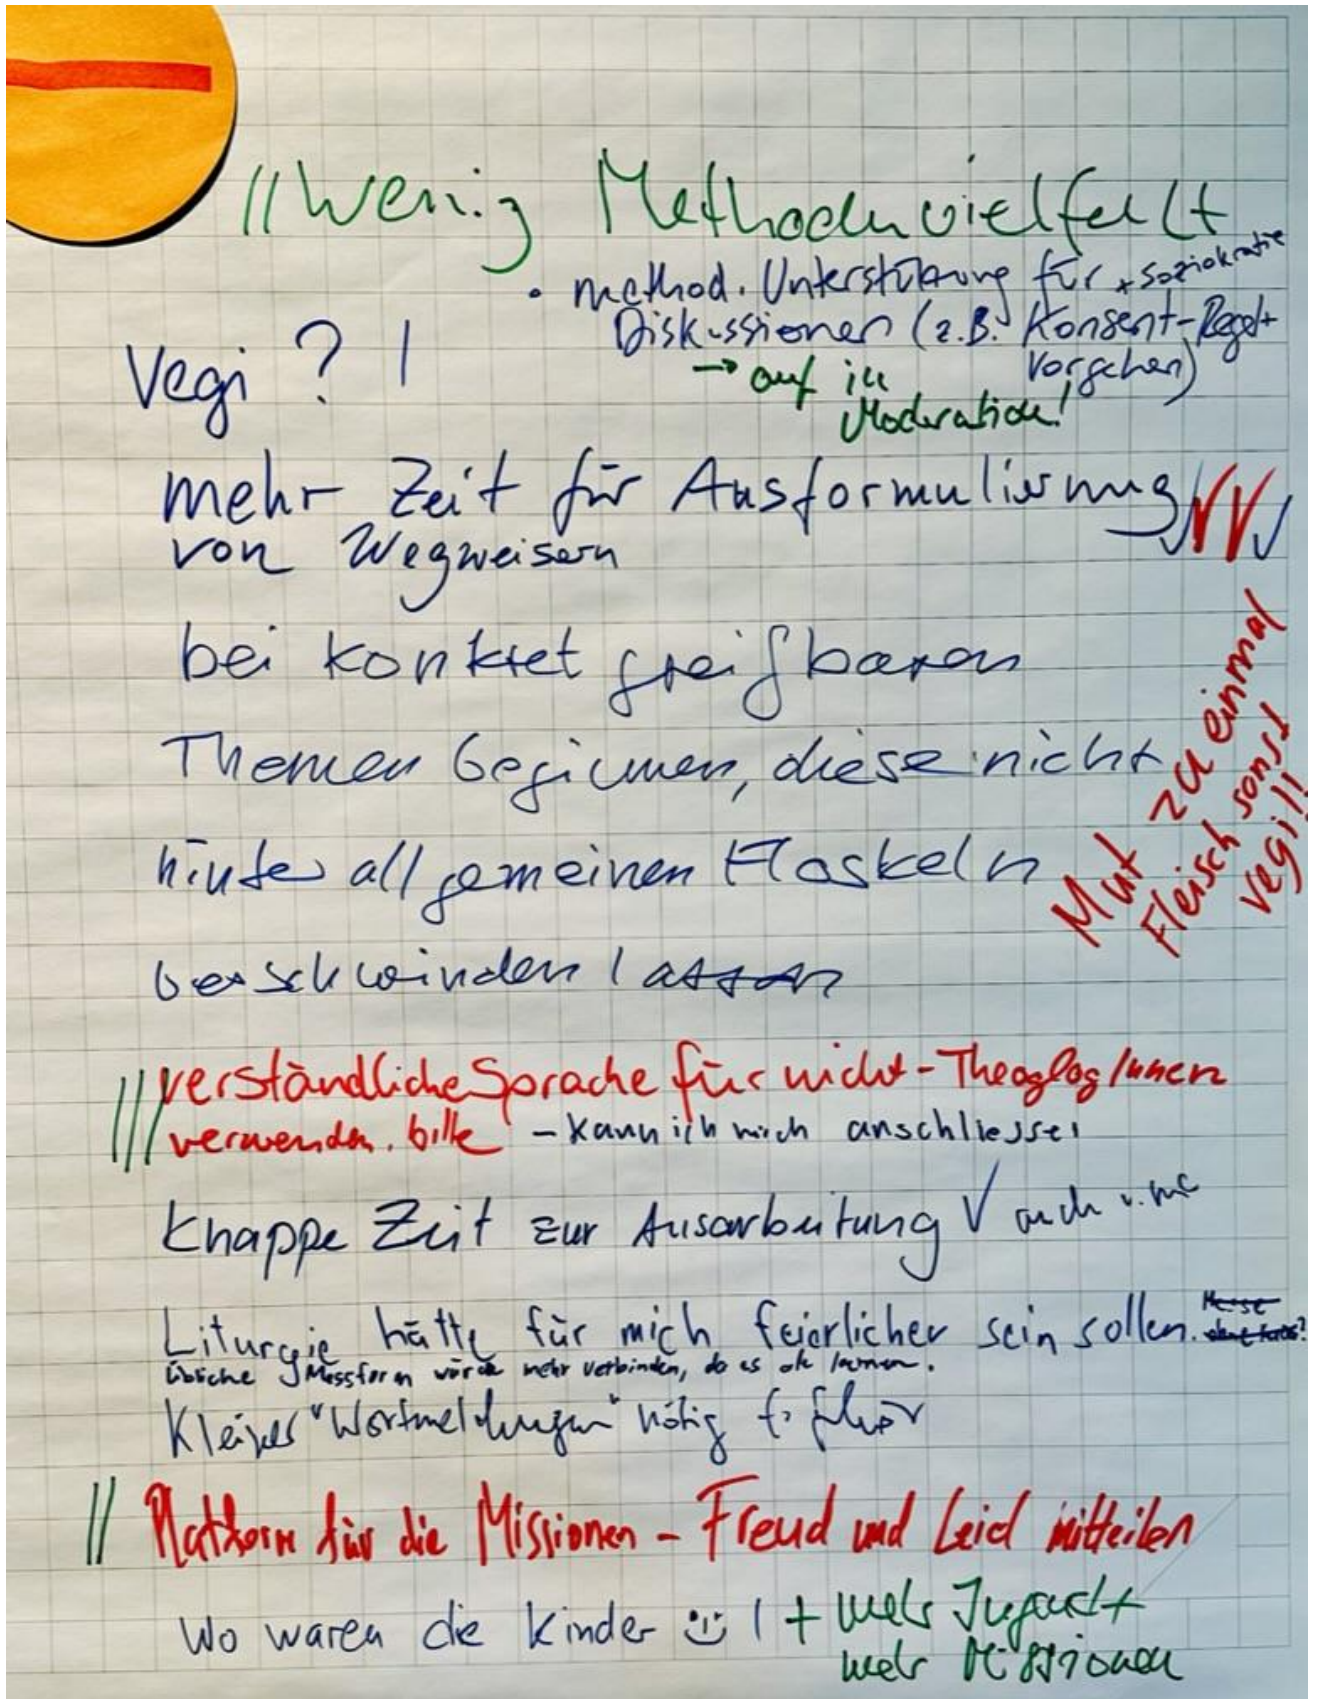 // Wenig Methodenvielfalt
• method. Unterstützung für + Soziokratie
Diskussionen (z.B. Konsent-Regel+
Vorgehen)
→ auf in
Moderation!
Vegi ? |
mehr Zeit für Ausformulierung
von Wegweisern
bei konkret greifbaren
Themen beginnen, diese nicht
hinter allgemeinen Floskeln
verschwinden lassen
Mut zu einmal
Fleisch sonst
vegi!!
/// verständliche Sprache für nicht-TheoglogInnen
verwenden. bitte – kann ich mich anschliessen
Knappe Zeit zur Ausarbeitung √ auch
Liturgie hätte für mich feierlicher sein sollen.
übliche Messform würde mehr verbinden, da es alle kennen.
"Wortmeldungen" nötig
// Plattform für die Missionen – Freud und Leid mitteilen
Wo waren die Kinder | + mehr Jugend +
mehr Missionen